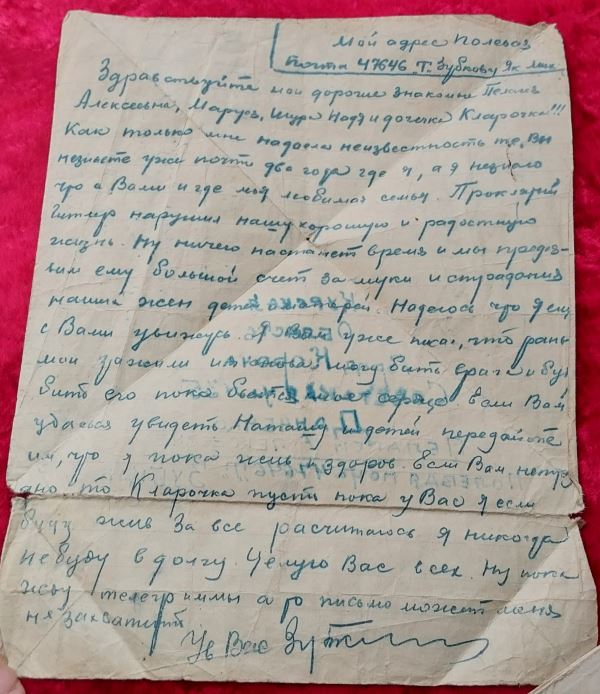 Мой адрес Полевая
почта 47646 Т. Зубкову Як
Здравствуйте мои дорогие знакомые
Алексеевна, Маруся, Шура Надя и доченька Кларочка!!!
Как только мне надоела неизвестность те, Вы
незнаете уже почти два года где я, а я незнаю
что с Вами и где моя любимая семья. Проклятый
Гитлер нарушил нашу хорошую и радостную
жизнь. Ну ничего настанет время и мы предъя-
вим ему большой счет за муки и страдания
наших жен детей и матерей. Надеюсь что я еще
с Вами увижусь. Я Вам уже писал, что раны
мои зажили и снова могу бить врага и буду
бить его пока бьется мое сердце если Вам
удасться увидеть Наташу и детей передайте
им, что я пока жив и здоров. Если Вам нетру
дно то Кларочка пусть пока у Вас я если
буду жив за все расчитаюсь я никогда
небуду в долгу. Целую Вас всех. Ну пока
жду телеграммы а то письмо может меня
не захватит
Ув Вас